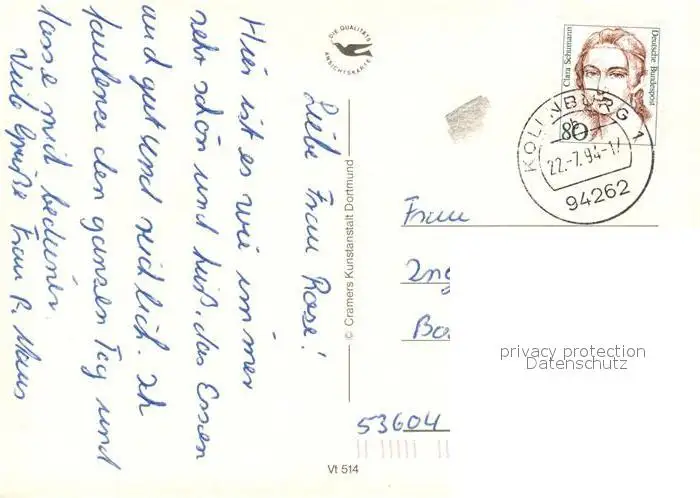 Liebe Frau Rose!
Hier ist es wie immer
sehr schön und heiß, das Essen
und gut und reichlich. Ich
faulenze den ganzen Tag und
lasse mich bedienen.
Viele Grüße Frau P. Maus
DIE QUALITÄTS
ANSICHTSKARTE
© Cramers Kunstanstalt Dortmund
Clara Schumann
Deutsche Bundespost
80
KOLLNBURG 1
22.-7.94-17
94262
Frau
Ing
Ba
53604
privacy protection
Datenschutz
Vt 514